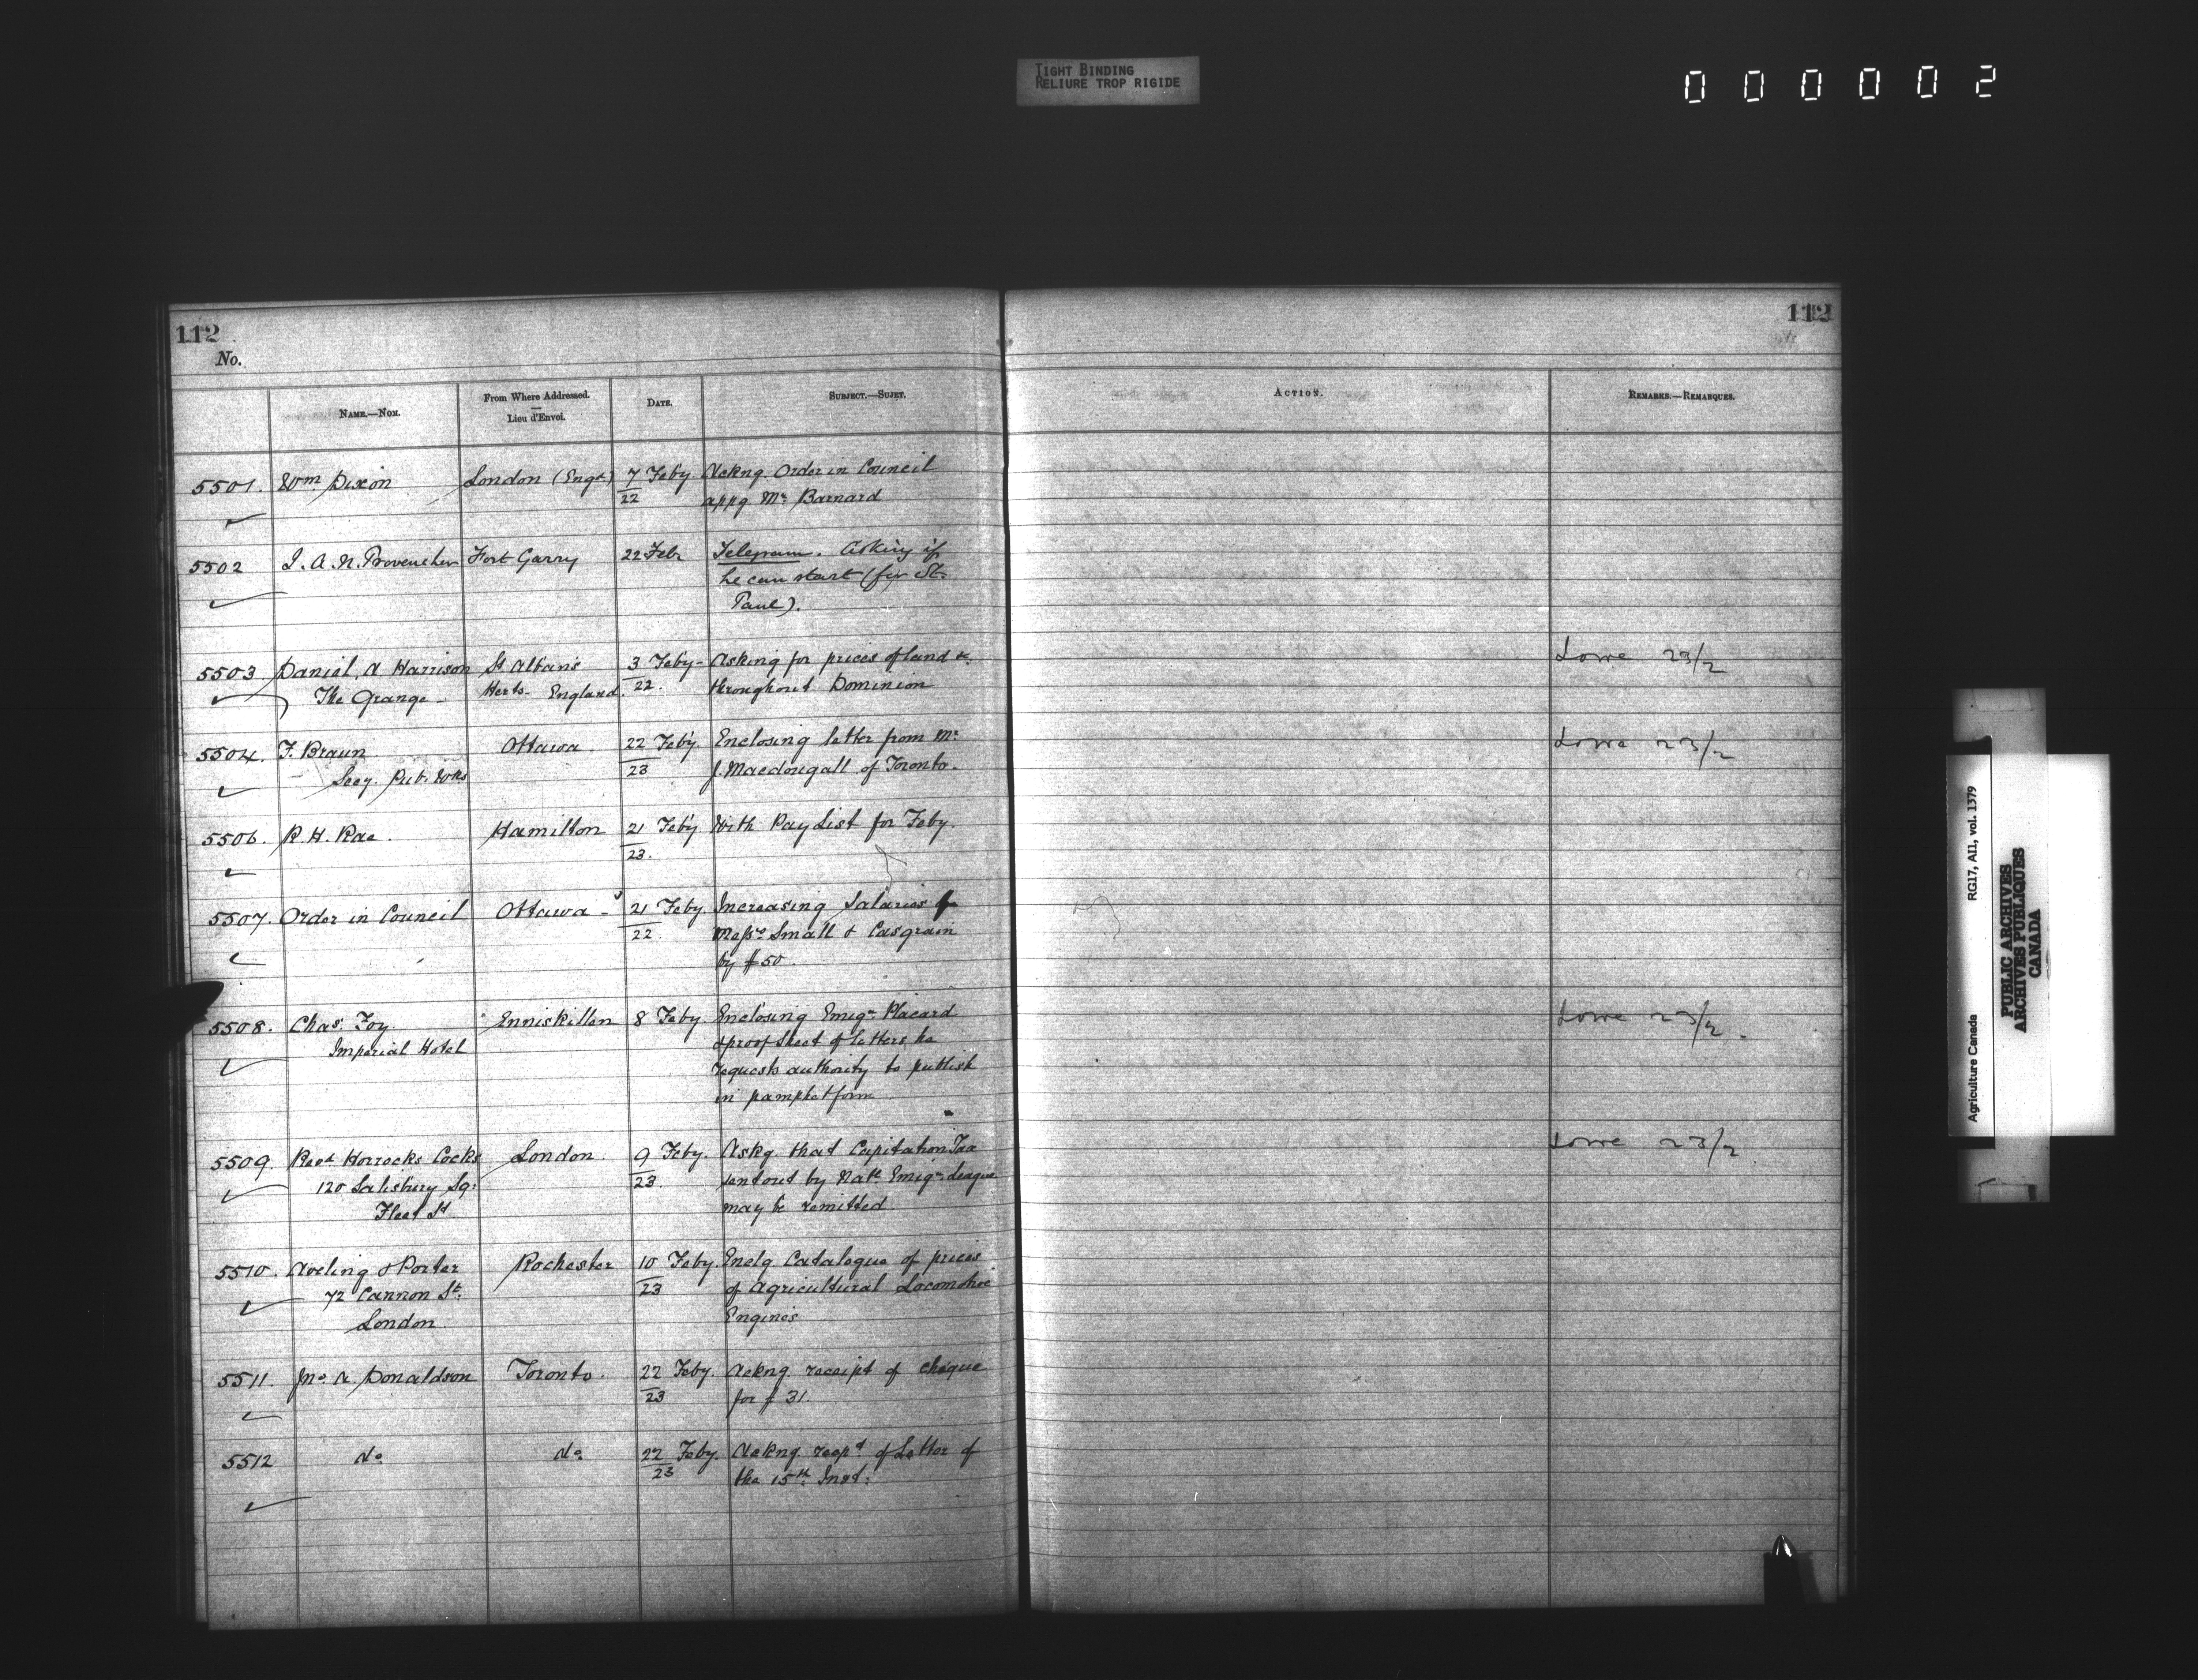 TIGHT BINDING
RELIURE TROP RIGIDE
000002
112
112
No.
NAME.—NOM.
From Where Addressed.
—
Lieu d'Envoi.
DATE.
SUBJECT.—SUJET.
ACTION.
REMARKS.—REMARQUES.
5501. Wm Dixon London (Engd) 7 Feby Ackng. Order in Council
22 appg Mr Barnard
5502 J. A. N. Provencher Fort Garry 22 Feby Telegram. Asking if
he can start (for St.
Paul).
5503 Daniel A Harrison St Albans 3 Feby - Asking for prices of land &c. Lowe 23/2
The Grange - Herts - England. 22. throughout Dominion
5504. F. Braun Ottawa 22 Feby. Enclosing letter from Mr Lowe 23/2
Secy. Pub. Wks 23 J. Macdougall of Toronto.
5506. R. H. Rae. Hamilton 21 Feby. With Pay List for Feby.
23.
5507. Order in Council Ottawa - 21 Feby. Increasing Salaries of
22. Messrs Small & Casgrain
by $50.
5508. Chas. Foy. Enniskillen 8 Feby Enclosing Emign Placard Lowe 23/2.
Imperial Hotel & proof sheet of letters he
requests authority to publish
in pamphet form
5509. Revd Horrocks Cocks London. 9 Feby. Askg. that Capitation Tax Lowe 23/2
120 Salisbury Sq: 23. sent out by Natl Emign League
Fleet St. may be remitted.
5510. Aveling & Porter Rochester 10 Feby. Enclg Catalogue of prices
72 Cannon St: 23 of Agricultural Locomotive
London Engines
5511. Jno. A. Donaldson Toronto. 22 Feby. Ackng receipt of cheque
23 for $31.
5512 do do 22 Feby. Ackng recpt of Letter of
23 the 15th Inst:
Agriculture Canada RG17, AII, vol. 1379
PUBLIC ARCHIVES
ARCHIVES PUBLIQUES
CANADA